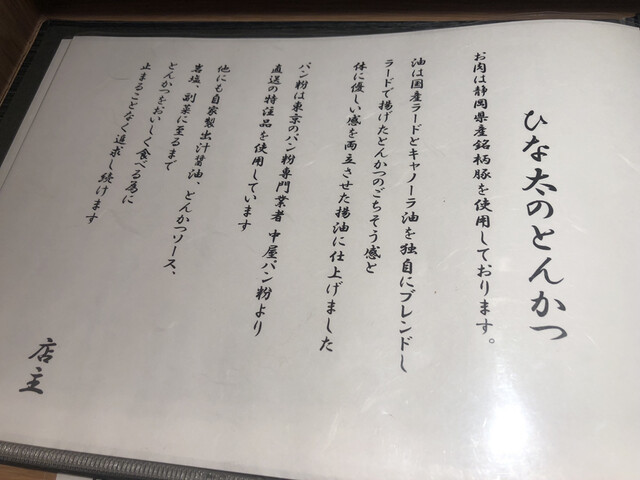 ひな太のとんかつ
お肉は静岡県産銘柄豚を使用しております。
油は国産ラードとキャノーラ油を独自にブレンドし
ラードで揚げたとんかつのごちそう感と
体に優しい感を両立させた揚油に仕上げました
パン粉は東京のパン粉専門業者 中屋パン粉より
直送の特注品を使用しています
他にも自家製出汁醤油、とんかつソース、
岩塩、副菜に至るまで
とんかつをおいしく食べる為に
止まることなく追求し続けます
店主